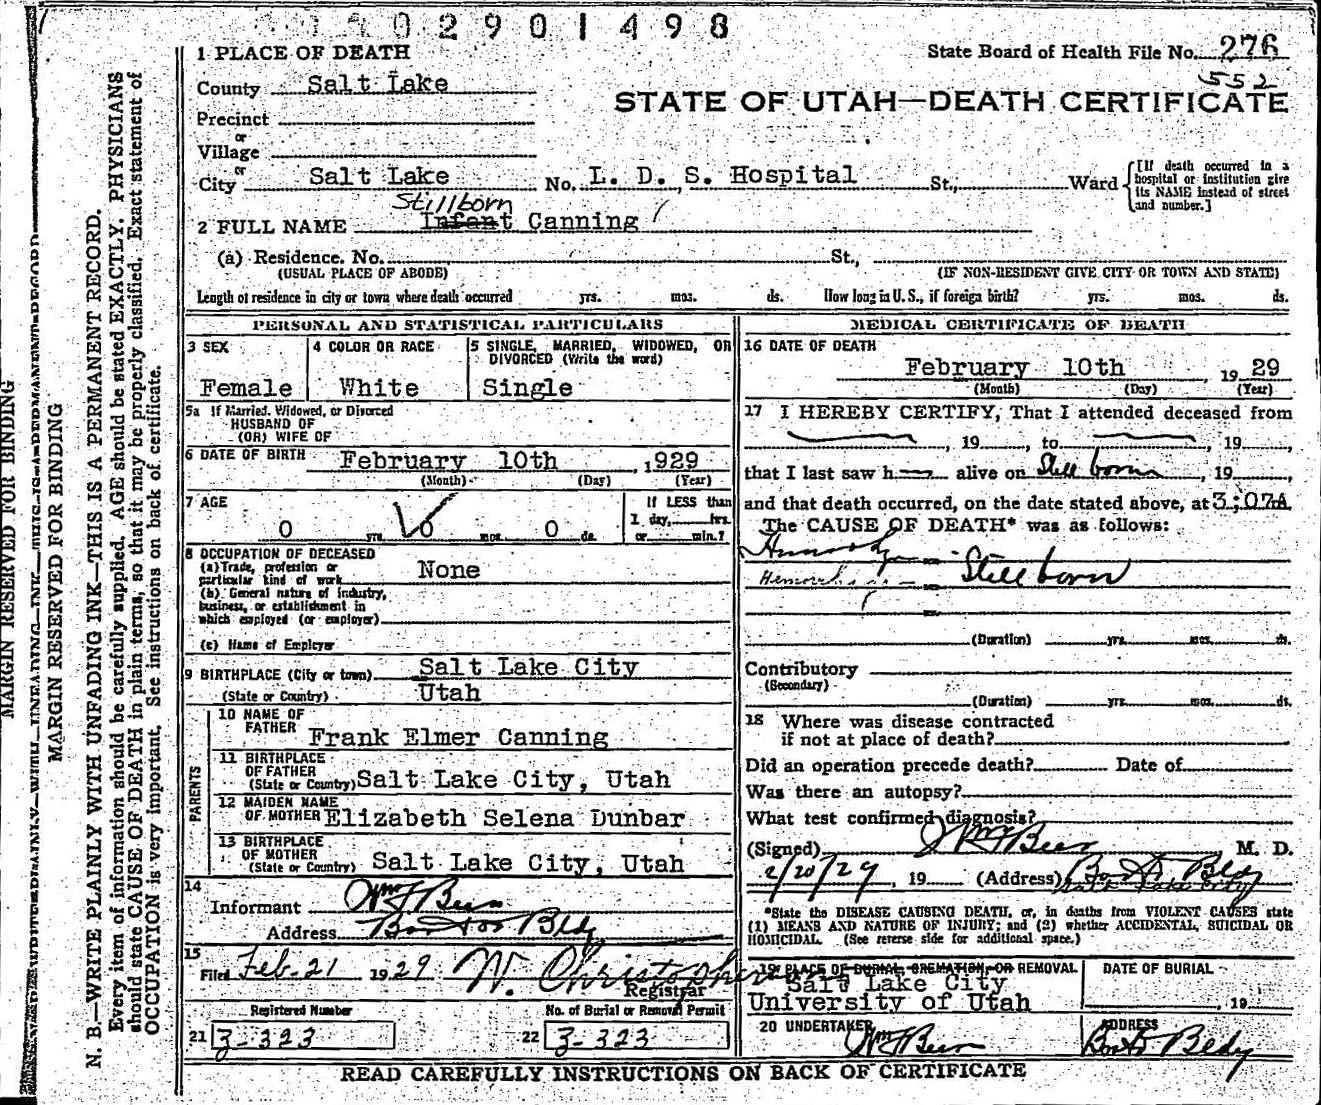 0 2 9 0 1 4 9 8
1 PLACE OF DEATH
State Board of Health File No. 276
552
County Salt Lake
STATE OF UTAH—DEATH CERTIFICATE
Precinct
or
Village
or
City Salt Lake No. L. D. S. Hospital St., Ward [If death occurred in a hospital or institution give its NAME instead of street and number.]
Stillborn
2 FULL NAME Infant Canning
(a) Residence. No. St.,
(USUAL PLACE OF ABODE) (IF NON-RESIDENT GIVE CITY OR TOWN AND STATE)
Length of residence in city or town where death occurred yrs. mos. ds. How long in U.S., if foreign birth? yrs. mos. ds.
PERSONAL AND STATISTICAL PARTICULARS
3 SEX
Female
4 COLOR OR RACE
White
5 SINGLE, MARRIED, WIDOWED, OR
DIVORCED (Write the word)
Single
5a If Married, Widowed, or Divorced
HUSBAND OF
(OR) WIFE OF
6 DATE OF BIRTH February 10th, 1929
(Month) (Day) (Year)
7 AGE
0 yrs. 0 mos. 0 ds.
If LESS than
1 day, hrs.
or min.?
8 OCCUPATION OF DECEASED
(a) Trade, profession or
particular kind of work None
(b) General nature of industry,
business, or establishment in
which employed (or employer)
(c) Name of Employer
9 BIRTHPLACE (City or town) Salt Lake City
(State or Country) Utah
PARENTS
10 NAME OF
FATHER Frank Elmer Canning
11 BIRTHPLACE
OF FATHER
(State or Country) Salt Lake City, Utah
12 MAIDEN NAME
OF MOTHER Elizabeth Selena Dunbar
13 BIRTHPLACE
OF MOTHER
(State or Country) Salt Lake City, Utah
14
Informant Wm F Beer
Address Bldg
15
Filed Feb. 21 1929 W. Christopherson
Registrar
Registered Number
21 3-323
No. of Burial or Removal Permit
22 3-323
MEDICAL CERTIFICATE OF DEATH
16 DATE OF DEATH
February 10th 1929
(Month) (Day) (Year)
17 I HEREBY CERTIFY, That I attended deceased from
, 19 , to , 19 ,
that I last saw h alive on Still born, 19
and that death occurred, on the date stated above, at 3:07A
The CAUSE OF DEATH* was as follows:
Still born
(Duration) yrs. mos. ds.
Contributory
(Secondary)
(Duration) yrs. mos. ds.
18 Where was disease contracted
if not at place of death?
Did an operation precede death? Date of
Was there an autopsy?
What test confirmed diagnosis?
(Signed) Wm F Beer M. D.
2/20/29, 19 (Address) Bldg
Salt Lake City
*State the DISEASE CAUSING DEATH, or, in deaths from VIOLENT CAUSES state
(1) MEANS AND NATURE OF INJURY; and (2) whether ACCIDENTAL, SUICIDAL OR
HOMICIDAL. (See reverse side for additional space.)
19 PLACE OF BURIAL, CREMATION, OR REMOVAL
Salt Lake City
University of Utah
DATE OF BURIAL
, 19
20 UNDERTAKER
Wm F Beer
ADDRESS
Bldg
READ CAREFULLY INSTRUCTIONS ON BACK OF CERTIFICATE
MARGIN RESERVED FOR BINDING
MARGIN RESERVED FOR BINDING
N. B.—WRITE PLAINLY WITH UNFADING INK—THIS IS A PERMANENT RECORD.
Every item of information should be carefully supplied. AGE should be stated EXACTLY. PHYSICIANS
should state CAUSE OF DEATH in plain terms, so that it may be properly classified. Exact statement of
OCCUPATION is very important. See instructions on back of certificate.